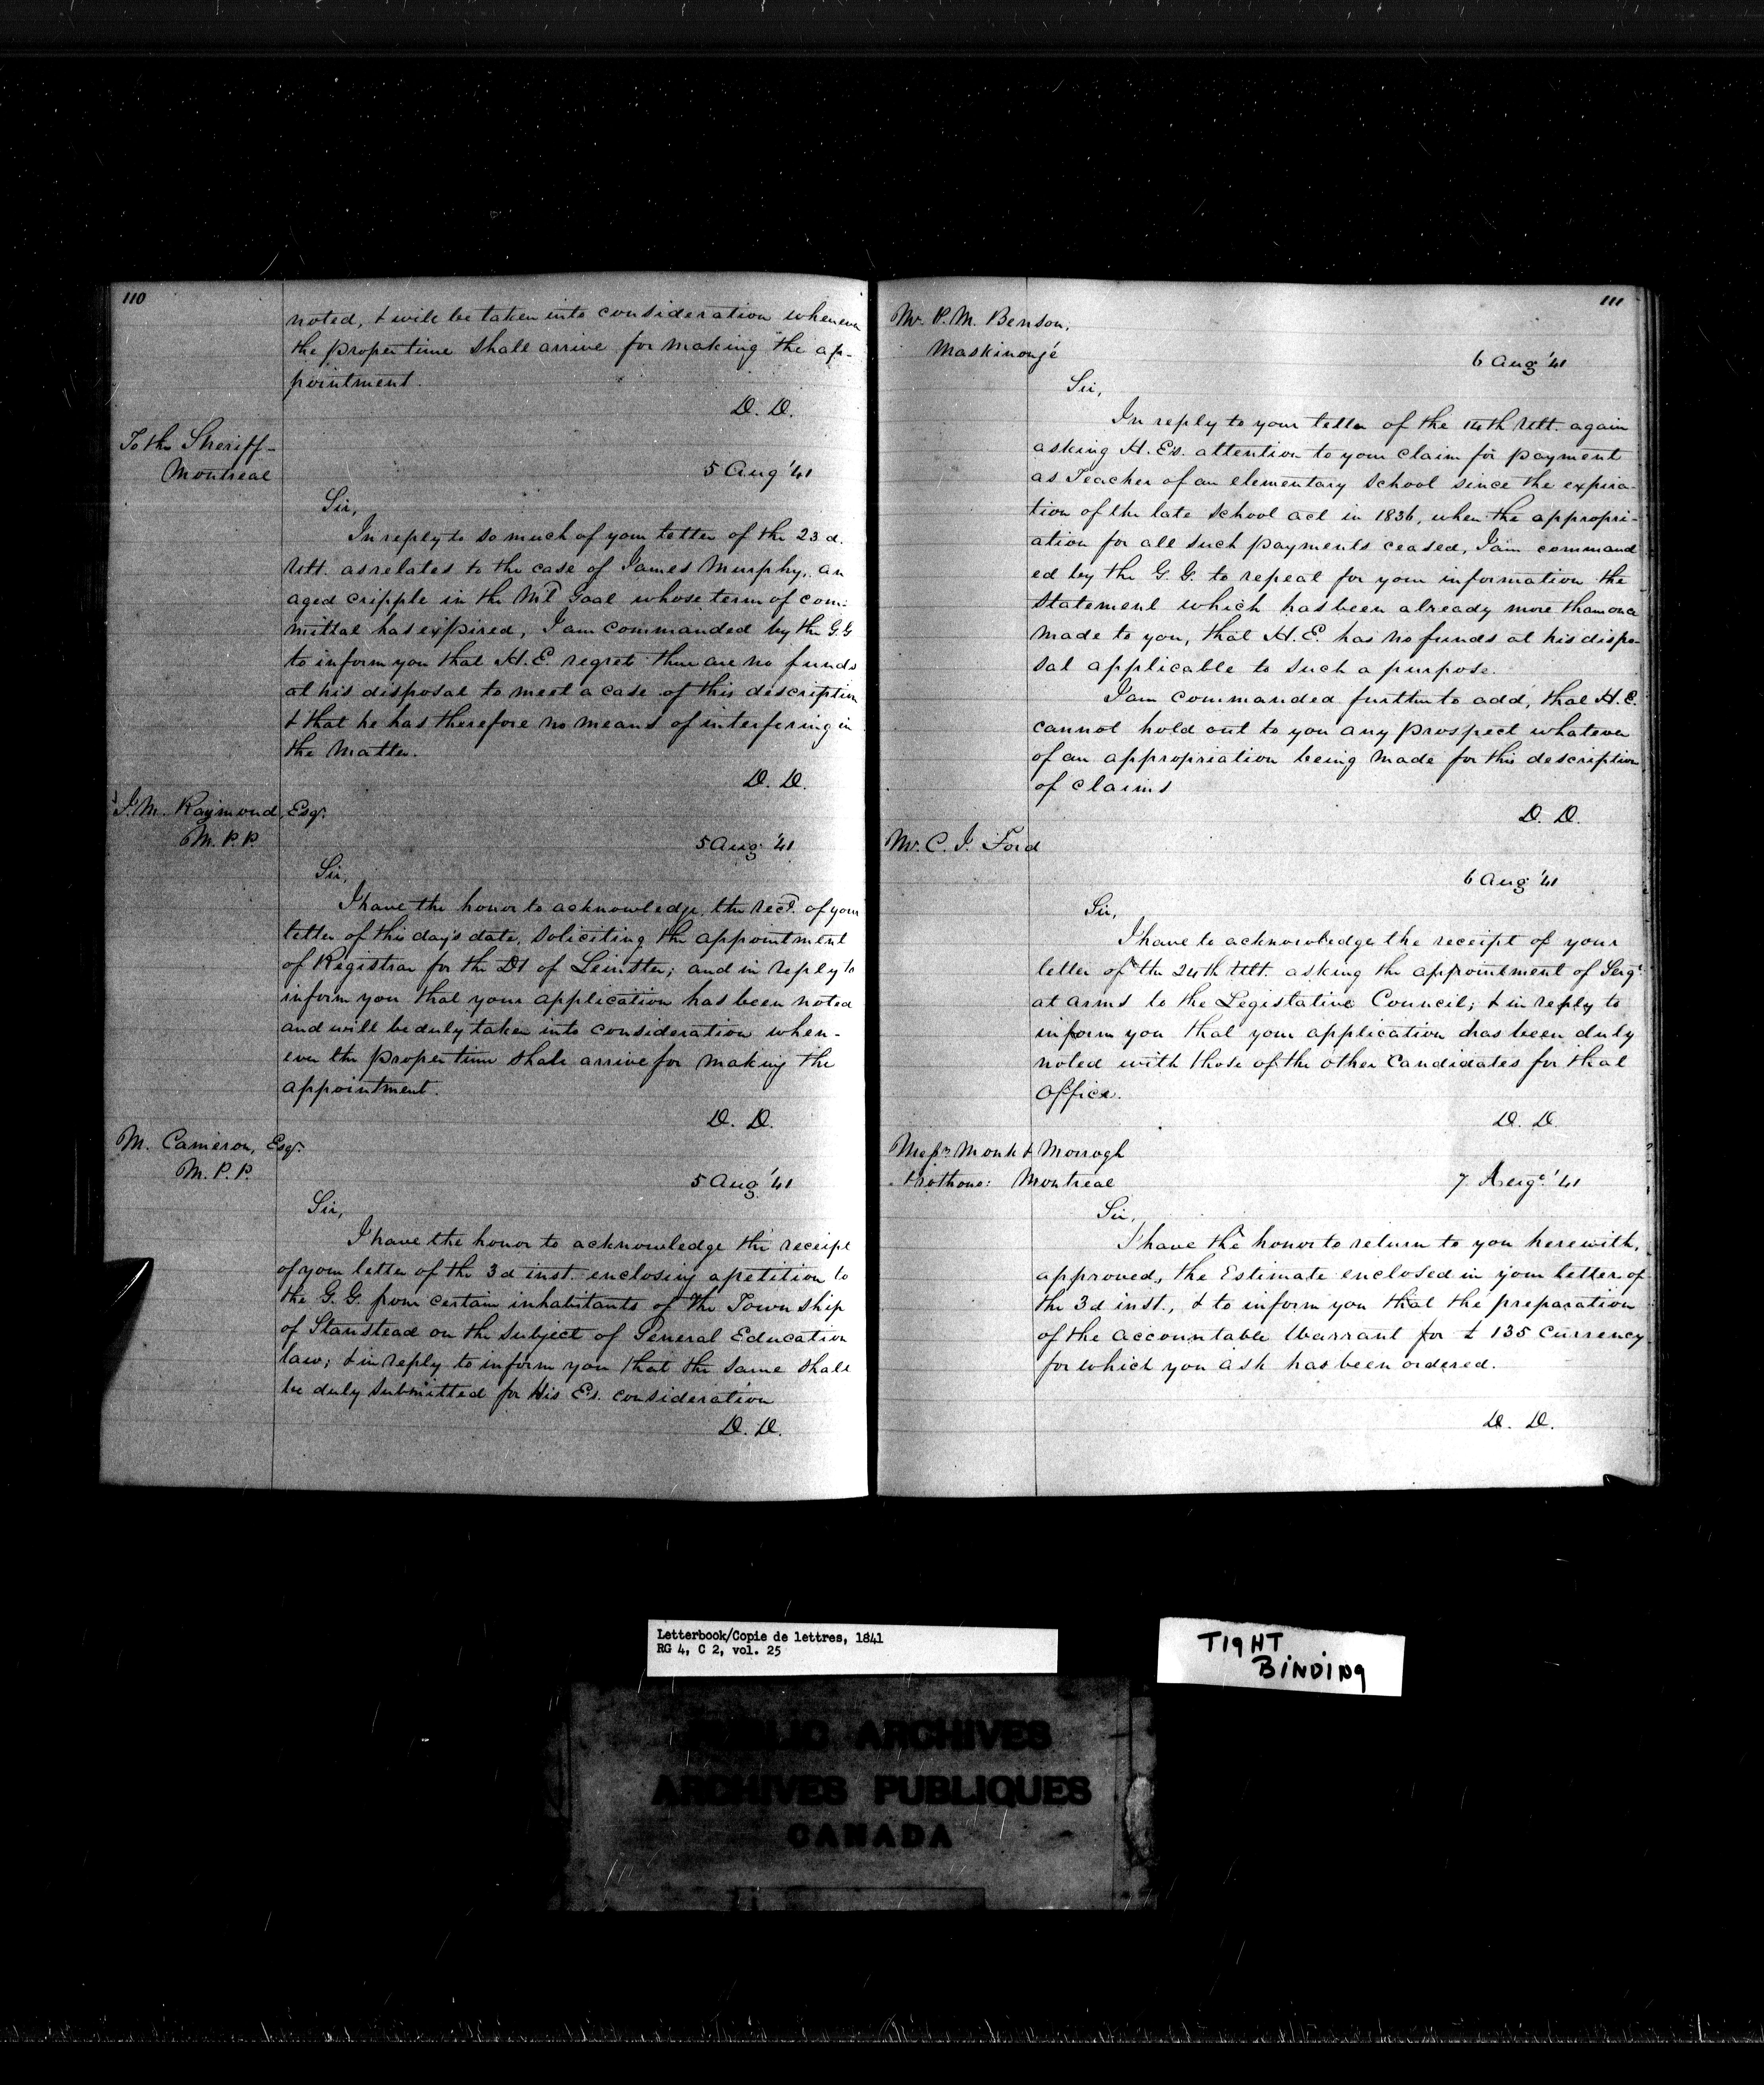 110
noted, & will be taken into consideration whenever
the proper time shall arrive for making the ap-
pointment.
D. D.
To the Sheriff
Montreal
5 Aug '41
Sir,
In reply to so much of your letter of the 23 d.
Ult. as relates to the case of James Murphy, an
aged cripple in the Ml Goal whose term of com-
mittal has expired, I am commanded by the G.G
to inform you that H.E. regrets there are no funds
at his disposal to meet a case of this description
& that he has therefore no means of interfering in
the matter.
D. D.
J. M. Raymond, Esqr.
M. P. P.
5 Aug '41
Sir,
I have the honor to acknowledge the rect. of your
letter of this day's date, soliciting the appointment
of Registrar for the Dt of Leinster; and in reply to
inform you that your application has been noted
and will be duly taken into consideration when-
ever the proper time shall arrive for making the
appointment.
D. D.
M. Cameron, Esqr.
M. P. P.
5 Aug '41
Sir,
I have the honor to acknowledge the receipt
of your letter of the 3d inst. enclosing a petition to
the G. G. from certain inhabitants of the Township
of Stanstead on the subject of General Education
law; & in reply to inform you that the same shall
be duly submitted for His Es. consideration
D. D.
111
Mr. P. M. Benson,
Maskinongé
6 Aug '41
Sir,
In reply to your letter of the 14th Ult. again
asking H. Es. attention to your claim for payment
as Teacher of an elementary School since the expira-
tion of the late School act in 1836, when the appropri-
ation for all such payments ceased, I am command
ed by the G. G. to repeat for your information the
statement which has been already more than once
made to you, that H. E. has no funds at his dispo-
sal applicable to such a purpose.
I am commanded further to add, that H. E.
cannot hold out to you any prospect whatever
of an appropriation being made for this description
of claims
D. D.
Mr. C. J. Ford
6 Aug '41
Sir,
I have to acknowledge the receipt of your
letter of the 24th Ult. asking the appointment of Sergt
at arms to the Legislative Council; & in reply to
inform you that your application has been duly
noted with those of the other Candidates for that
Office.
D. D.
Messrs Monk & Morrogh
Prothons: Montreal
7 Augt. '41
Sir,
I have the honor to return to you herewith,
approved, the Estimate enclosed in your letter of
the 3d inst., & to inform you that the preparation
of the accountable Warrant for £ 135 Currency
for which you ask has been ordered.
D. D.
Letterbook/Copie de lettres, 1841
RG 4, C 2, vol. 25
TIGHT
BINDING
PUBLIC ARCHIVES
ARCHIVES PUBLIQUES
CANADA